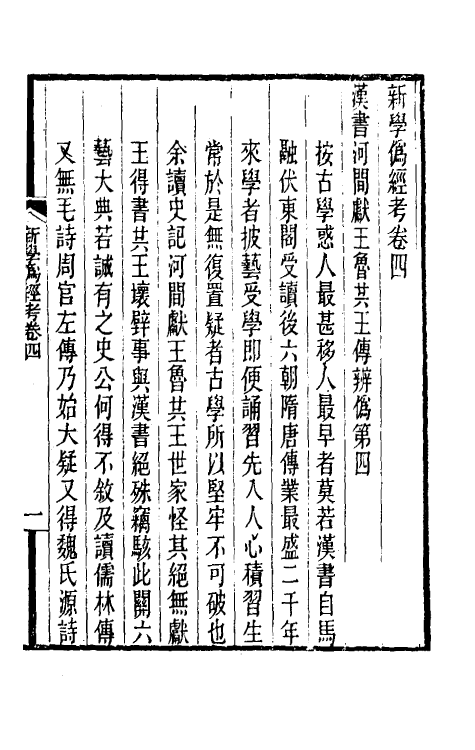 新學僞經考卷四
漢書河間獻王魯共王傳辨僞第四
按古學惑人最甚移人最早者莫若漢書自馬
融伏東閣受讀後六朝隋唐傳業最盛二千年
來學者披藝受學即便誦習先入人心積習生
常於是無復置疑者古學所以堅牢不可破也
余讀史記河間獻王魯共王世家怪其絕無獻
王得書共王壞壁事與漢書絕殊竊駭此關六
藝大典若誠有之史公何得不敘及讀儒林傳
又無毛詩周官左傳乃始大疑又得魏氏源詩
新學僞經考卷四
一